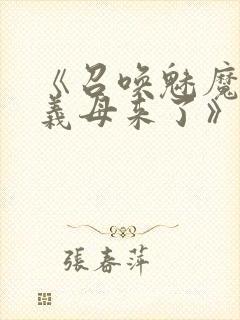 《召喚魅魔
義母来了》
張春萍